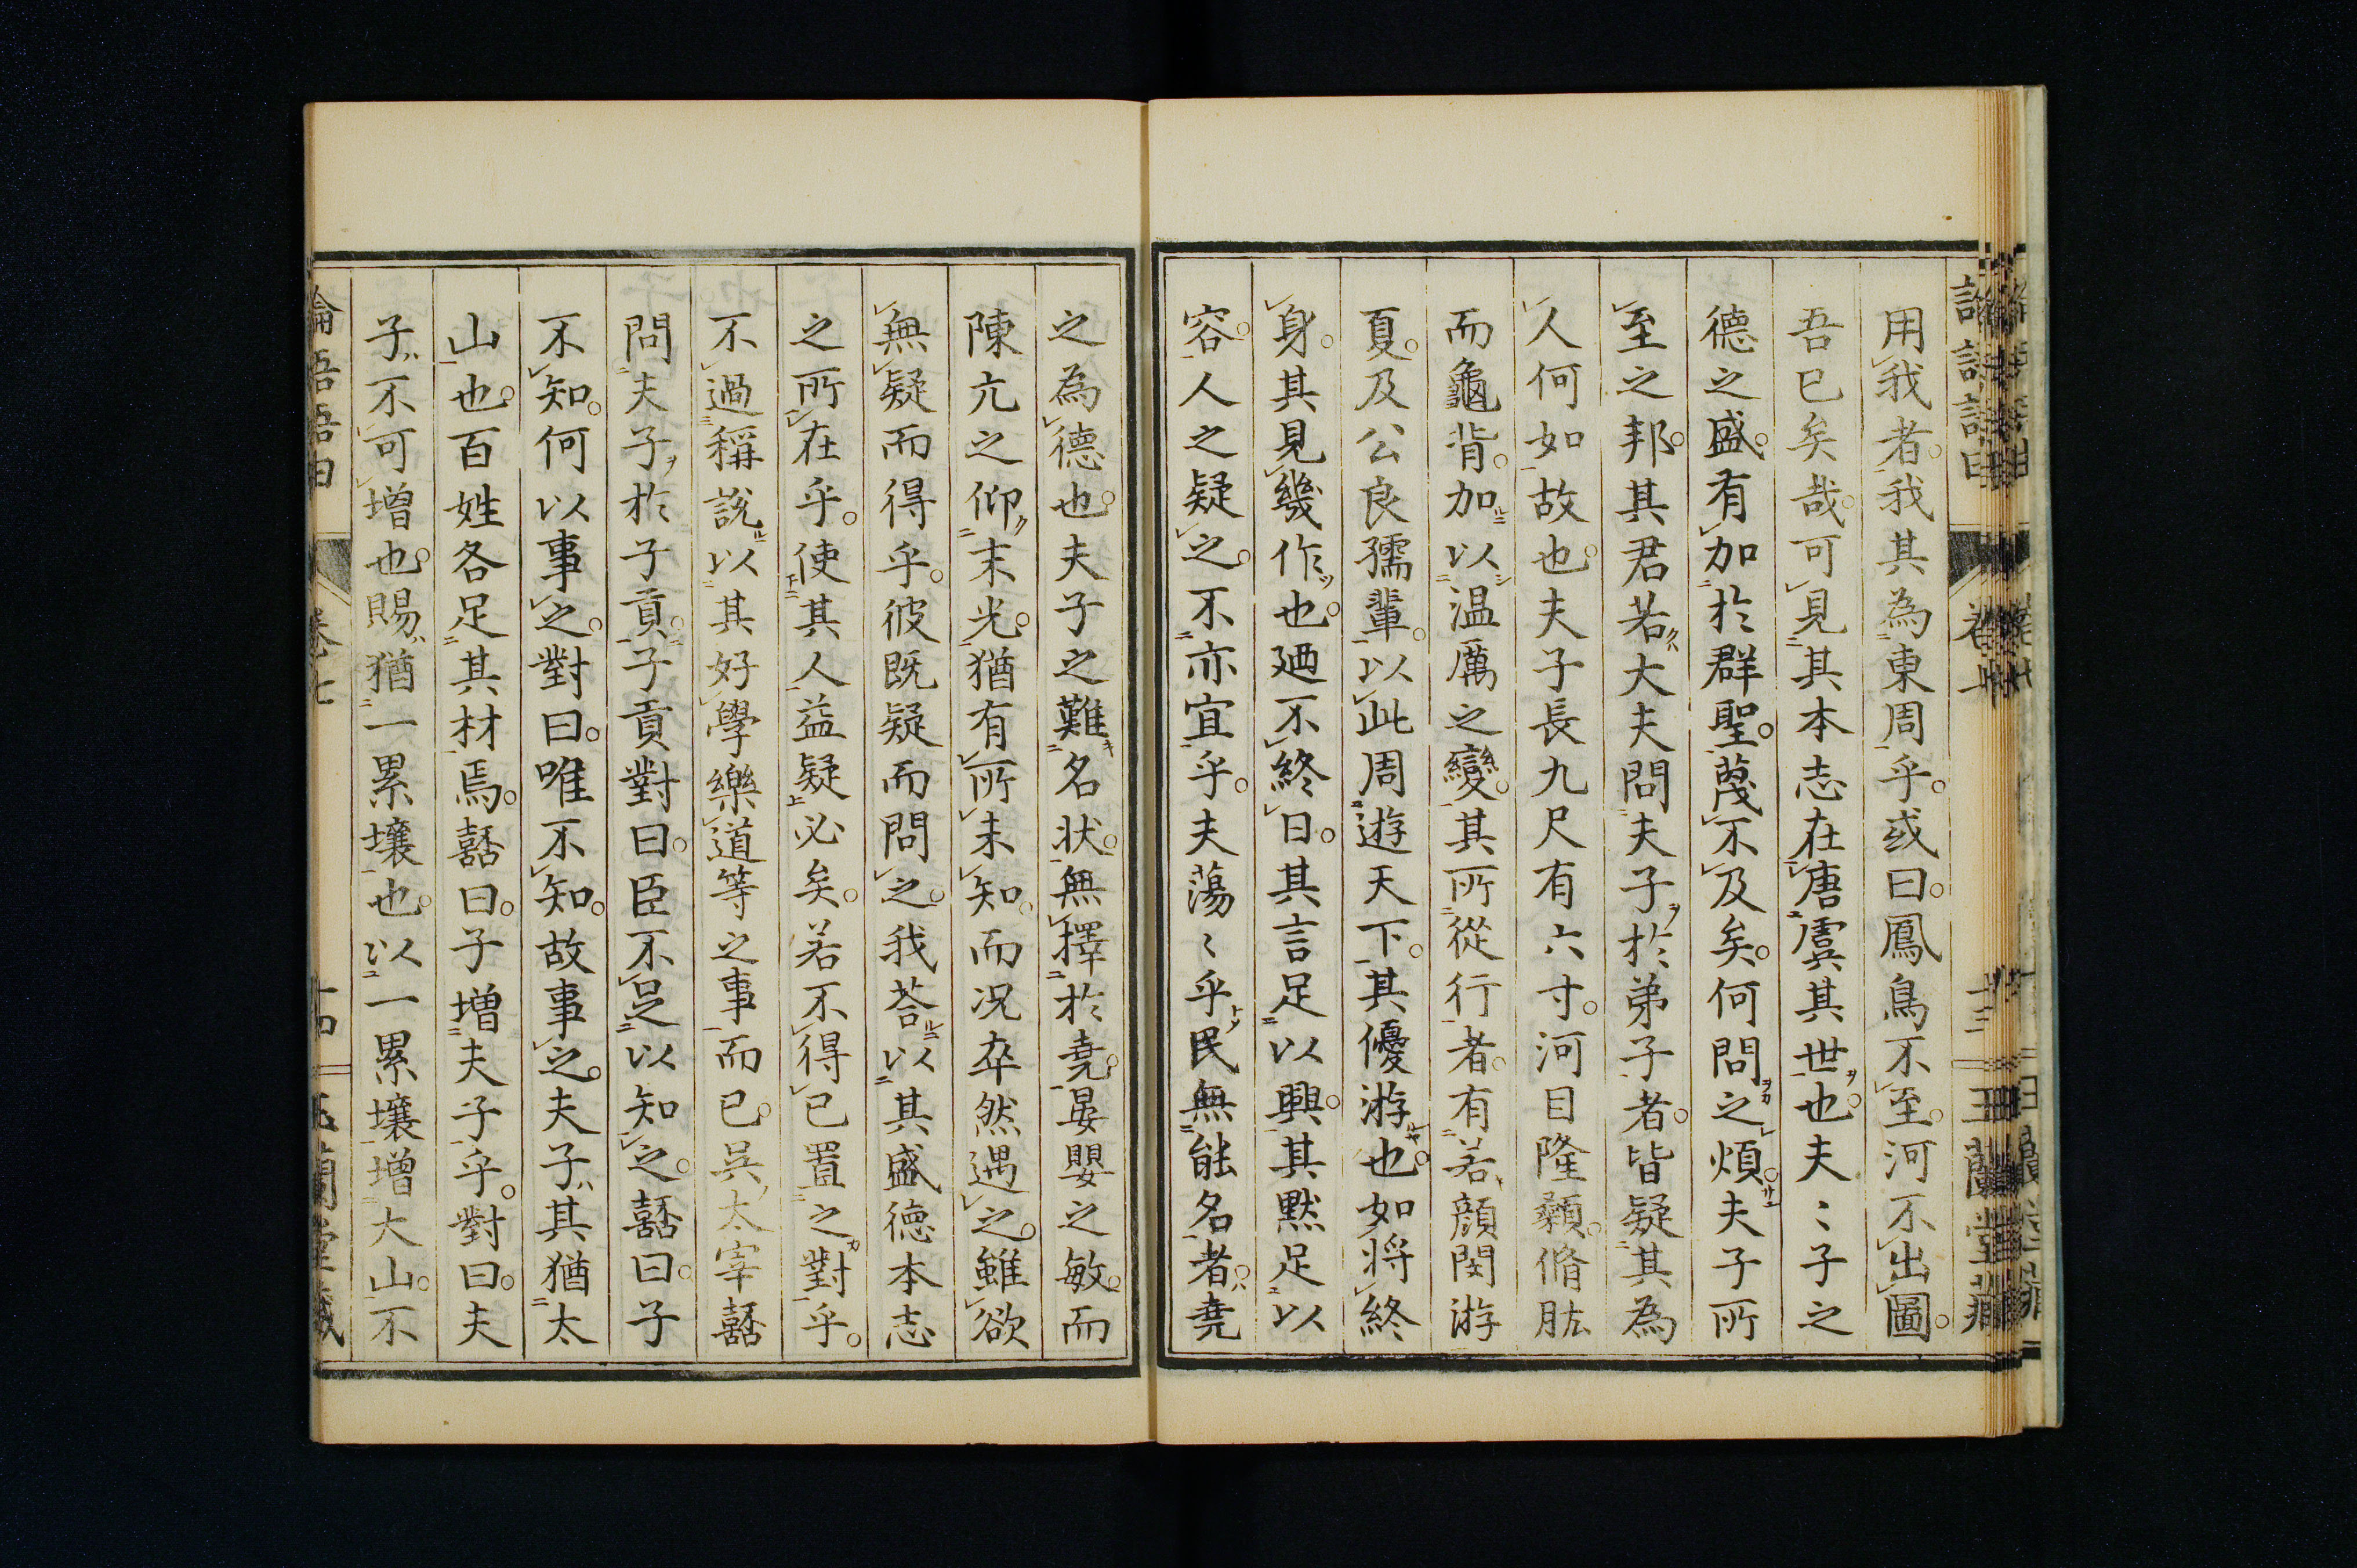 用我者我其為東周乎或曰鳳鳥不至河不出圖
吾已矣哉可見其本志在唐虞其世也夫〻子之
德之盛有加於群聖蔑不及矣何問之煩夫子所
至之邦其君若大夫問夫子於弟子者皆疑其為
人何如故也夫子長九尺有六寸河目隆顙脩肱
而龜背加以温厲之變其所從行者有若顔閔游
夏及公良孺輩以此周遊天下其優游也如將終
身其見幾作也廼不終日其言足以興其默足以
容人之疑之不亦宜乎夫蕩〻乎民無能名者堯
之為德也夫子之難名狀無擇於堯晏嬰之敏而
陳亢之仰末光猶有所未知而况卒然遇之雖欲
無疑而得乎彼既疑而問之我荅以其盛德本志
之所在乎使其人益疑必矣若不得已置之對乎
不過稱說以其好學樂道等之事而已吳太宰嚭
問夫子於子貢子貢對曰臣不足以知之嚭曰子
不知何以事之對曰唯不知故事之夫子其猶太
山也百姓各足其材焉嚭曰子增夫子乎對曰夫
子不可增也賜猶一累壤也以一累壤增大山不